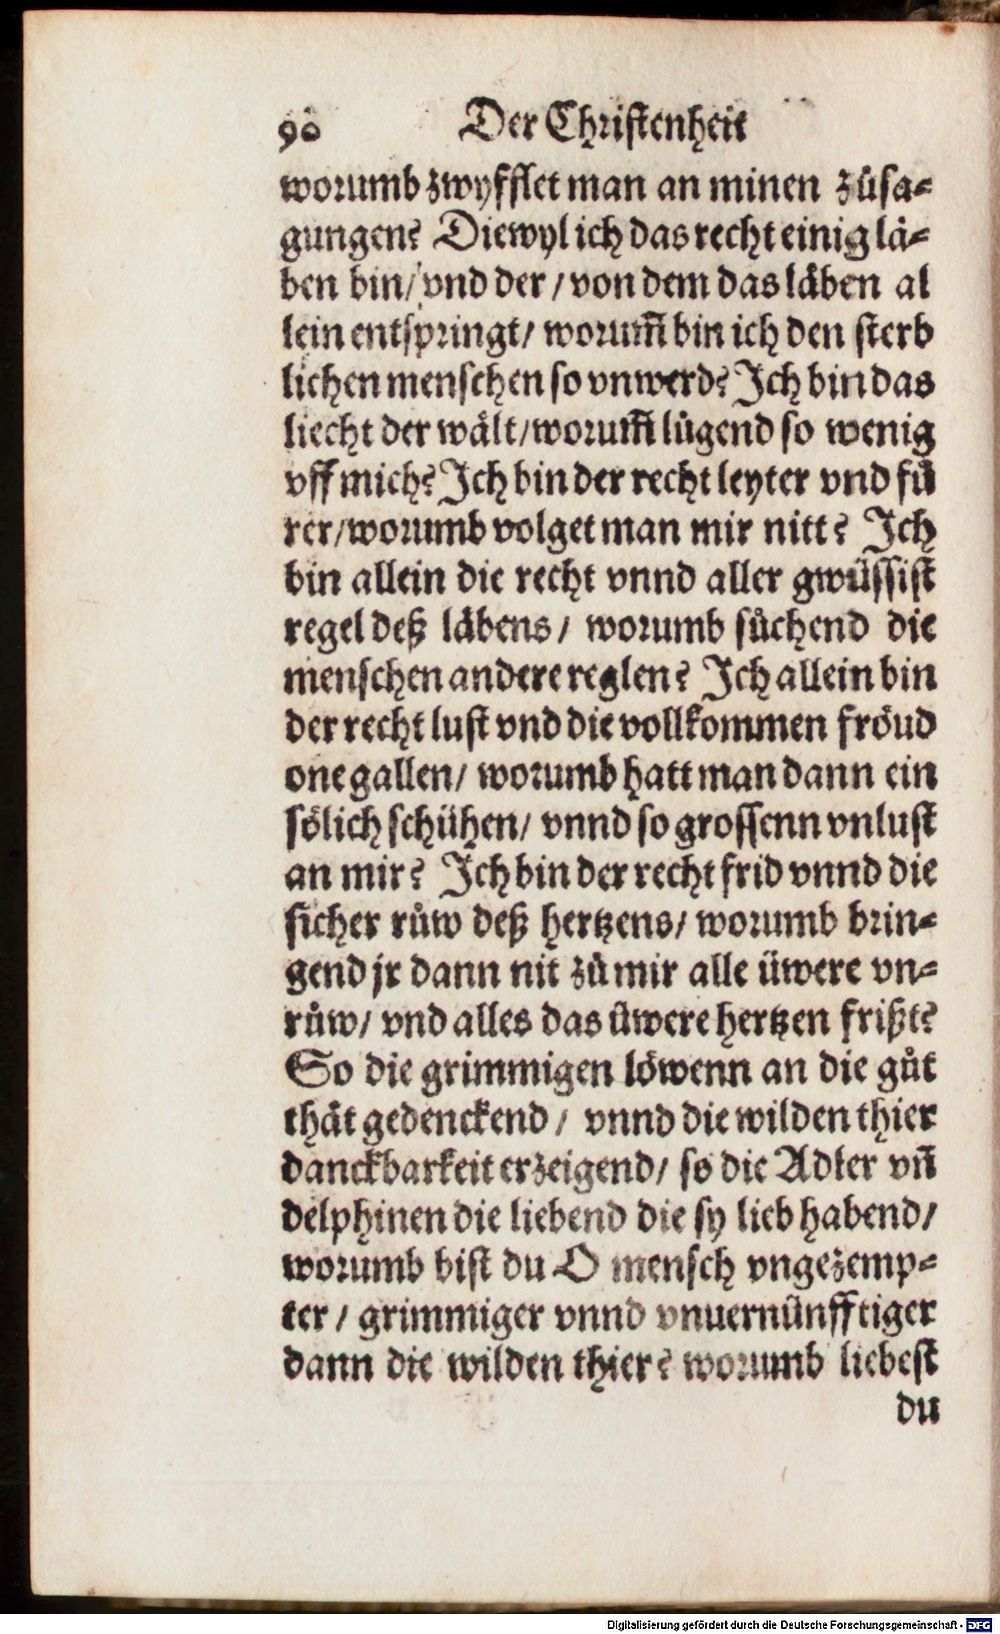 90 Der Christenheit
worumb zwyfflet man an minen zůsa⸗
gungen? Diewyl ich das recht einig lä⸗
ben bin/ vnd der / von dem das läben al
lein entspringt/ worum̃ bin ich den sterb
lichen menschen so vnwerd? Ich bin das
liecht der wält/ worum̃ lůgend so wenig
vff mich? Ich bin der recht leyter vnd fů
rer/ worumb volget man mir nitt? Ich
bin allein die recht vnnd aller gwüssist
regel deß läbens/ worumb sůchend die
menschen andere reglen? Ich allein bin
der recht lust vnd die vollkommen fröud
one gallen/ worumb hatt man dann ein
sölich schühen/ vnnd so grossenn vnlust
an mir? Ich bin der recht frid vnnd die
sicher růw deß hertzens/ worumb brin⸗
gend jr dann nit zů mir alle üwere vn⸗
růw/ vnd alles das üwere hertzen frißt?
So die grimmigen löwenn an die gůt
thät gedenckend / vnnd die wilden thier
danckbarkeit erzeigend/ so die Adler vñ
delphinen die liebend die sy lieb habend/
worumb bist du O mensch vngezemp⸗
ter / grimmiger vnnd vnuernünfftiger
dann die wilden thier? worumb liebest
du
Digitalisierung gefördert durch die Deutsche Forschungsgemeinschaft - DFG